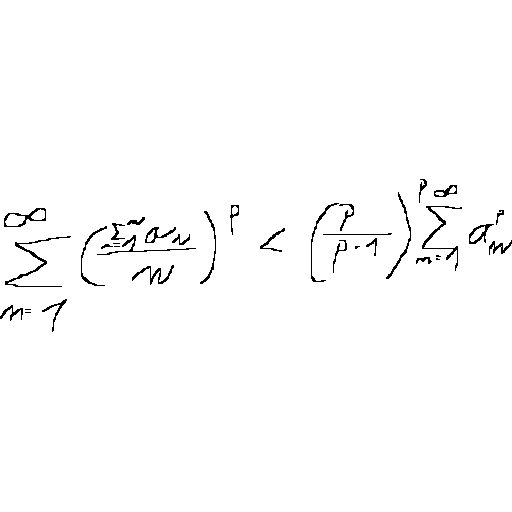 \sum_{n=1}^{\infty} \left( \frac{\sum_{n=1}^{n} a_n}{n} \right)^p < \left( \frac{p}{p-1} \right)^p \sum_{n=1}^{\infty} a_n^p